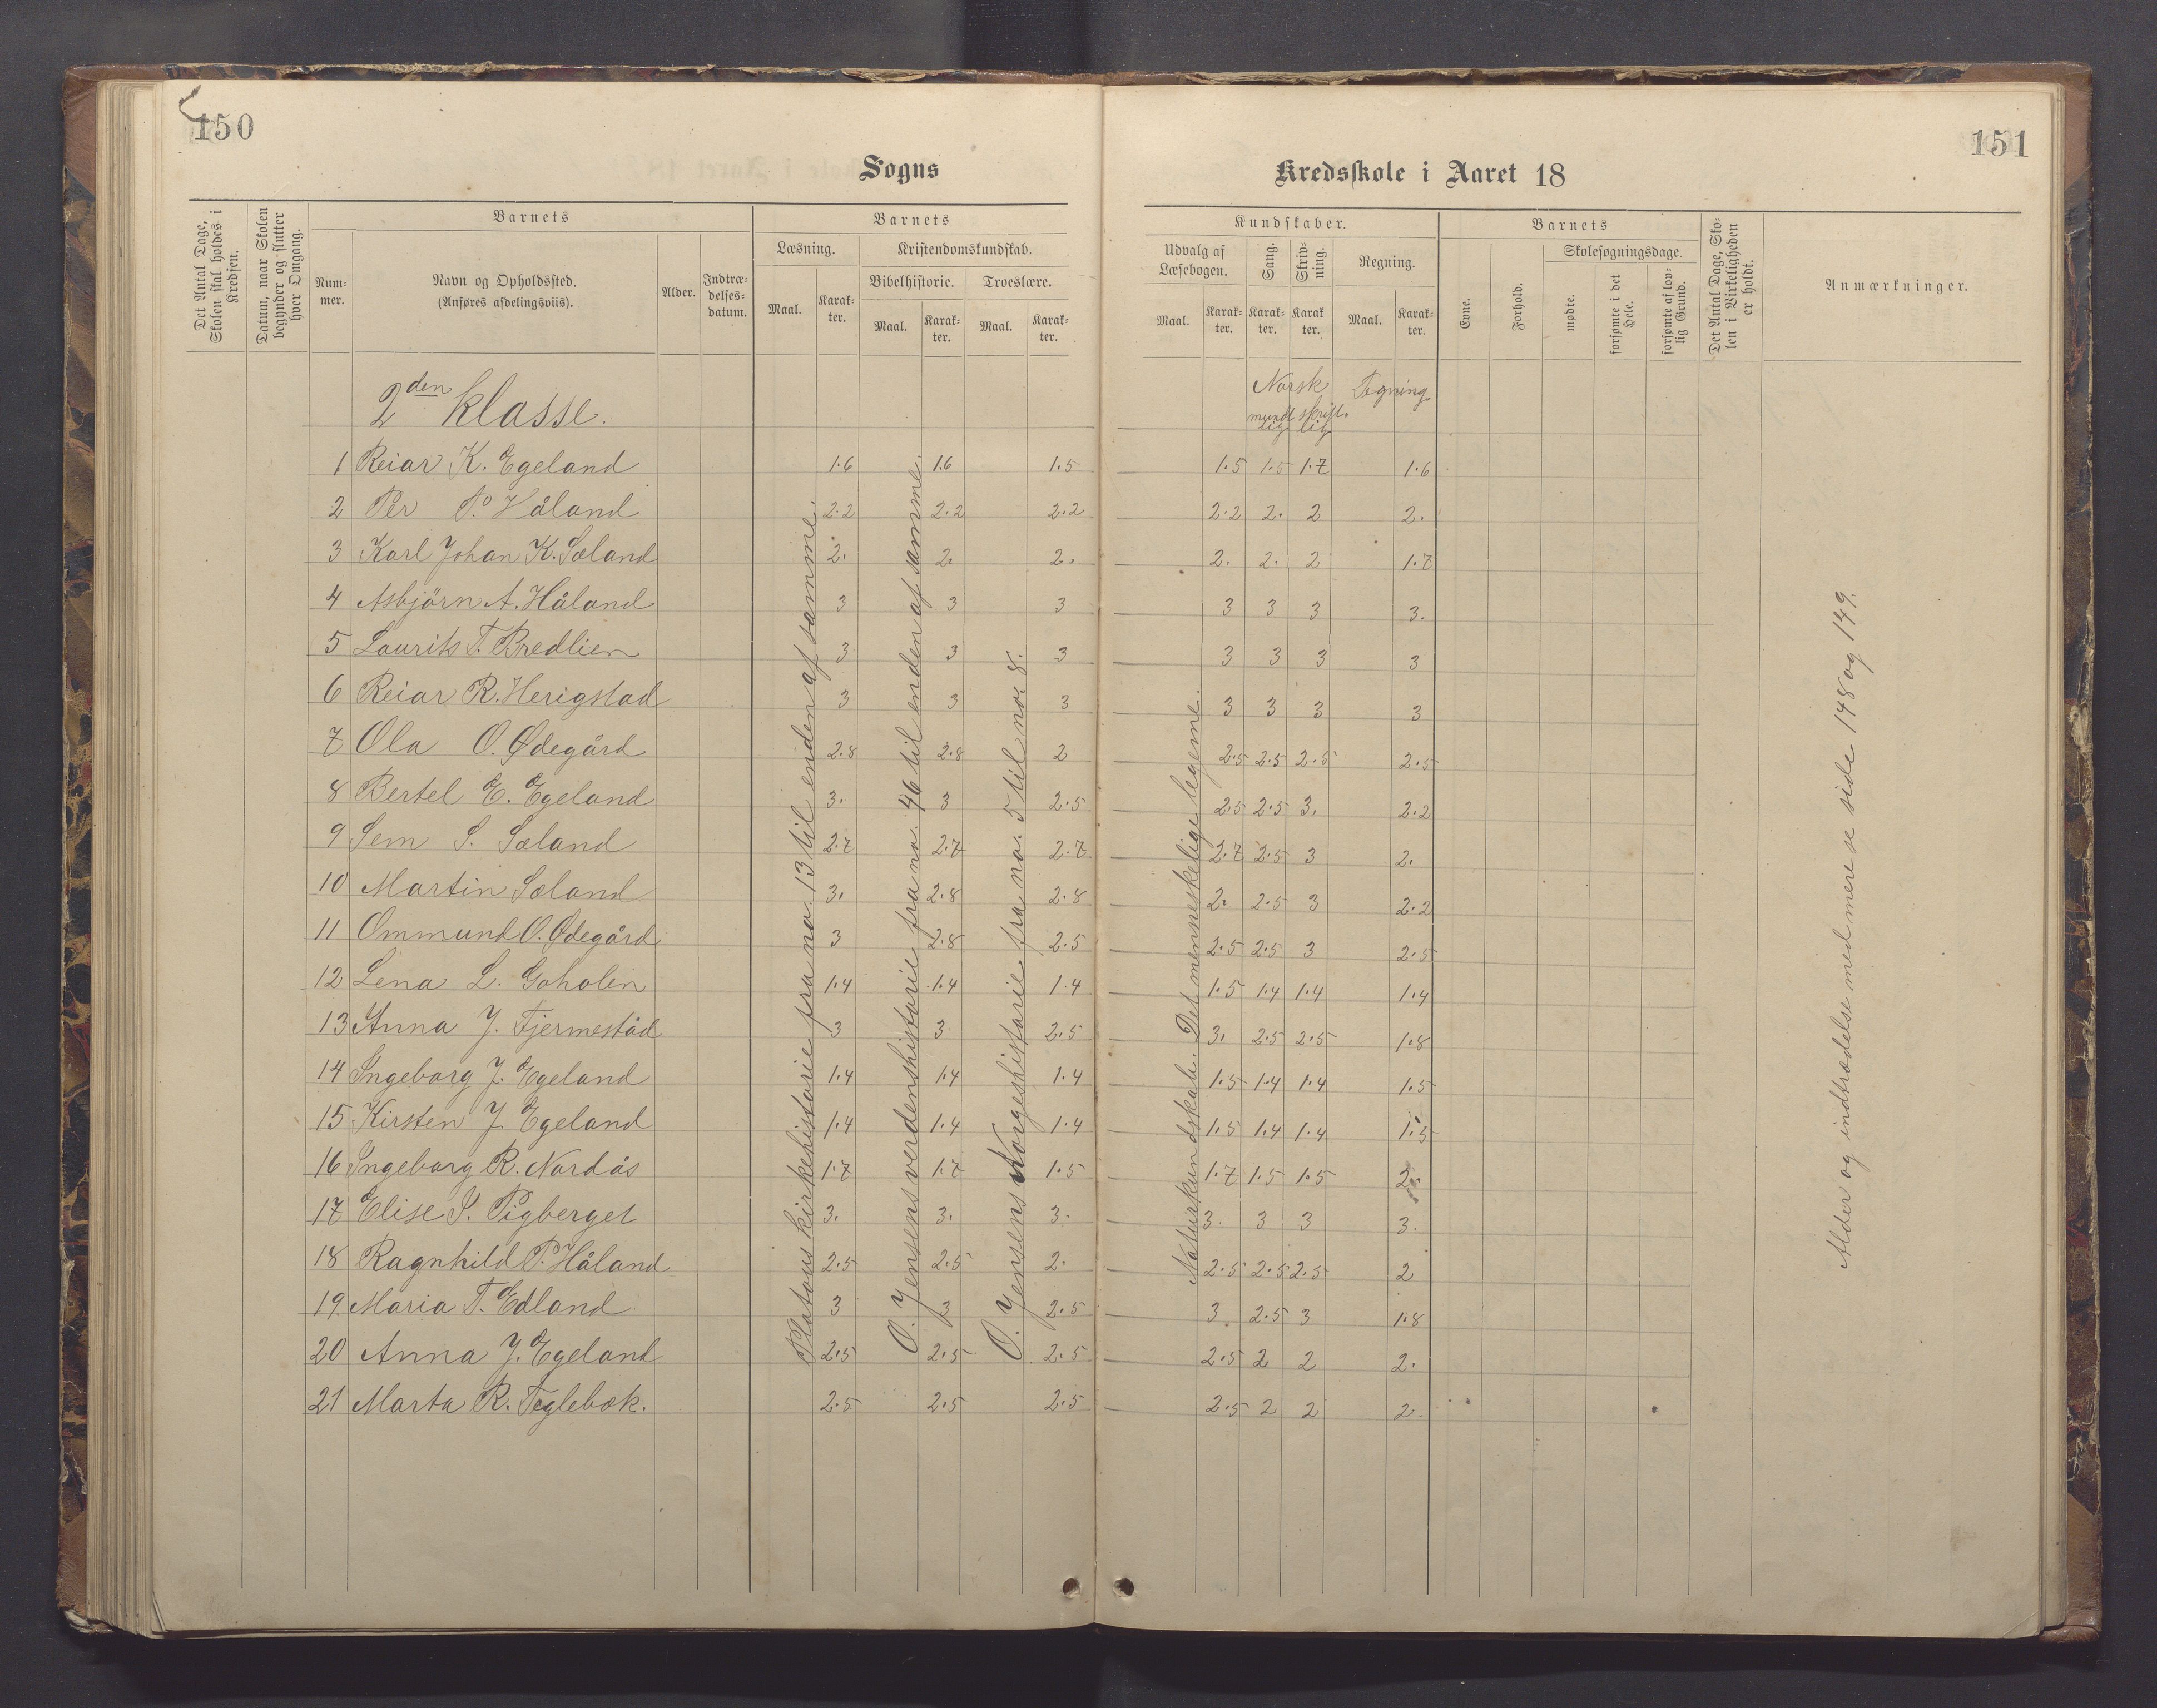 150
151
Sogns
Kredsskole i Aaret 18
Det Antal Dage, Skolen skal holdes i Kredsen.
Datum, naar Skolen begynder og slutter hver Omgang.
Barnets
Nummer.
Navn og Opholdssted.
(Anføres afdelingsviis).
Alder.
Indtrædelsesdatum.
Barnets
Læsning.
Kristendomskundskab.
Bibelhistorie.
Troeslære.
Maal.
Karakter.
Maal.
Karakter.
Maal.
Karakter.
Kundskaber.
Udvalg af Læsebogen.
Sang.
Skrivning.
Regning.
Maal.
Karakter.
Karakter.
Karakter.
Maal.
Karakter.
Barnets
Evne.
Forhold.
Skolesøgningsdage.
mødte.
forsømte i det Hele.
forsømte af lovlig Grund.
Det Antal Dage, Skolen i Virkeligheden er holdt.
Anmærkninger.
2den klasse.
Norsk
mundtlig skriftlig
Tegning
1 Reiar K. Egeland 1.6 1.6 1.5 1.5 1.5 1.7 1.6
2 Per P. Håland 2.2 2.2 2.2 2.2 2. 2 2.
3 Karl Johan K. Sæland 2. 2. 2. 2. 2. 2 1.7
4 Asbjörn A. Håland 3 3 3 3 3 3 3.
5 Laurits T. Bredlien 3 3 3 3 3 3 3
6 Reiar R. Herigstad 3 3 3 3 3 3 3
7 Ola O. Ødegård 2.8 2.8 2 2.5 2.5 2.5 2.5
8 Bertel E. Egeland 3. 3 2.5 2.5 2.5 3. 2.2
9 Sem S. Sæland 2.7 2.7 2.7 2.7 2.5 3 2.
10 Martin Sæland 3. 2.8 2.8 2. 2.5 3 2.2
11 Ommund O. Ødegård 3 2.8 2.5 2.5 2.5 3 2.5
12 Lena L. Goholen 1.4 1.4 1.4 1.5 1.4 1.4 1.4
13 Anna J. Fjermestad 3 3 2.5 3. 2.5 2.5 1.8
14 Ingeborg J. Egeland 1.4 1.4 1.4 1.5 1.4 1.4 1.5
15 Kirsten J Egeland 1.4 1.4 1.4 1.5 1.4 1.4 1.5
16 Ingeborg R. Nordås 1.7 1.7 1.5 1.7 1.5 1.5 2.
17 Elise S. Pigberget 3. 3. 3. 3. 3 3 3.
18 Ragnhild P. Håland 2.5 2.5 2. 2.5 2.5 2.5 2
19 Maria T. Edland 3 3 2.5 3. 2.5 3 1.8
20 Anna J. Egeland 2.5 2.5 2.5 2.5 2 2 2.
21 Marta R. Teglebæk. 2.5 2.5 2.5 2.5 2 2 2.
Platous kirkehistorie fra no. 13 til enden af samme.
O. Jensens verdenshistorie fra no. 46 til enden af samme.
O. Jensens Norgeshistorie fra no. 5 til no. 8.
Naturkundskab. Det menneskelige legeme.
Alder og indtrædelse med mere se side 148 og 149.